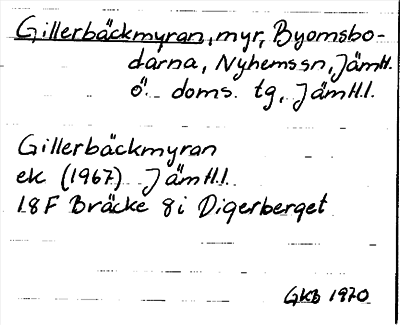 Gillerbäckmyran, myr, Byomsbo-
darna, Nyhemssn, Jämtl.
ö. doms. tg, Jämtl.l.
Gillerbäckmyran
ek (1967) Jämtl.l.
18F Bräcke 8i Digerberget
GKB 1970